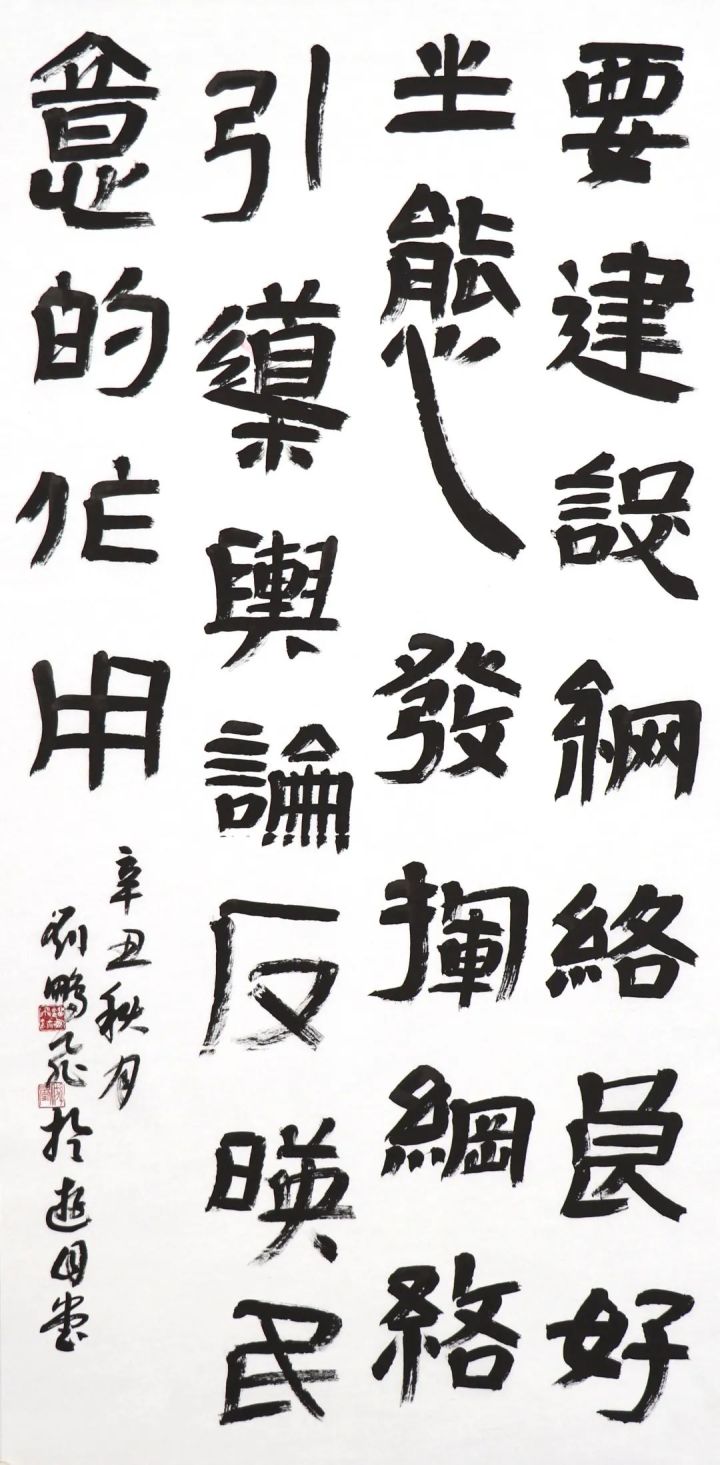 要建設網絡良好
生態發揮網絡
引導輿論反暎民
意的作用
辛丑秋月
劉鵬飛於遊目堂